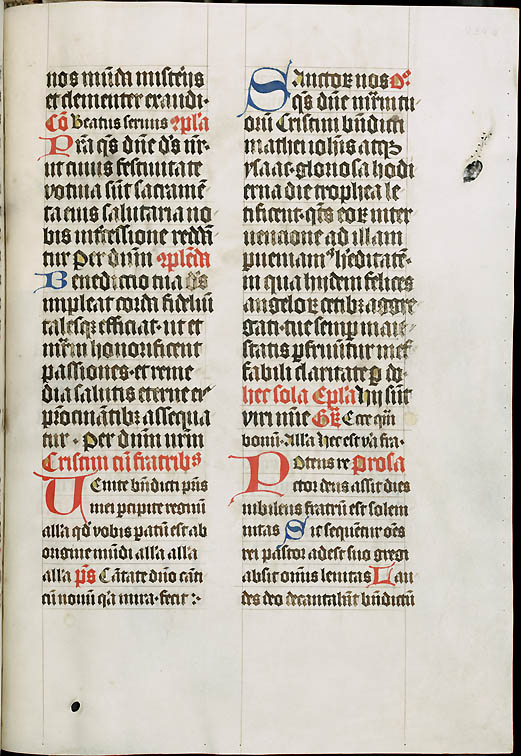 nos mūdi misterijs
et clementer exaudi·
Cō Beatus seruus ꝯpl'a
Pra qs dn̄e ds ur·
ut cuius festiuitate
votiua sūt sacramē
ta eius salutaria no
bis intercessione reddā
tur Per dnm ꝯplēda
Benedictio tua ds
impleat corda fideliū
talesqꝫ efficiat· ut et
mr̄m honorificent
passiones· et reme
dia salutis eterne ex
piōnantibꝫ assequā
tur · Per dnm nrm
Cristini cū fratribꝰ
Uenite bn̄dicti pr̄is
mei percipite regnū
all'a qd vobis patū est ab
origine mūdi all'a all'a
all'a ps Cātate dno cāti
cū nouū q'a mira· fecit :·
Sanctoꝝ nos Oꝰ
qs dn̄e mr̄m tu
orū Cristini bn̄dicti
mathei iohīs atqꝫ
ysaac· gloriosa hodi
erna die trophea le
tificent· qtꝫ eoꝝ inter
uencione ad illam
ꝑueniam' h'editatē·
in qua hijdem felices
angeloꝝ cetibꝫ aggre
gati· tue semꝑ maie
statis ꝑfruūtur inef
fabili claritate ꝑ do·
hec sola Epl'a Hij sūt
viri mīe Gr̄ Ecce qm̄
bonū· All'a Hec est v'a fra·
Potens re Prosa
ctor deus assit dies
nubileus fratrū est solem
nitas Sic sequentur oēs
rei pastor adest suo gregi
absit omīs leuitas Lau
des deo decantabūt bn̄dictū